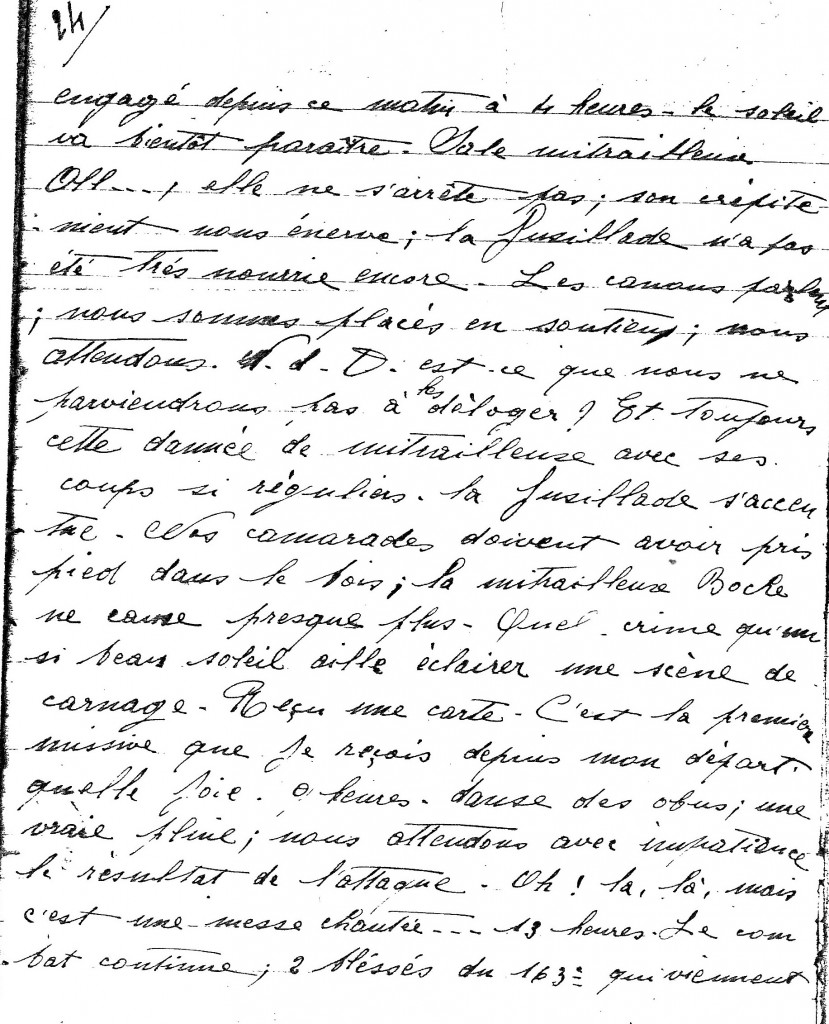 24/
engagé depuis ce matin à 4 heures - le soleil
va bientôt paraître. Sale mitrailleuse
All...., elle ne s'arrête pas; son crépite
-ment nous énerve; la fusillade n'a pas
été très nourrie encore - Les canons parlent
; nous sommes placés en soutien; nous
attendons. N. d. D. est-ce que nous ne
parviendrons pas à les déloger? Et toujours
cette damnée de mitrailleuse avec ses
coups si réguliers. la fusillade s'accen
tue - Nos camarades doivent avoir pris
pied dans le bois; la mitrailleuse Boche
ne cause presque plus - Quel crime qu'un
si beau soleil aille éclairer une scène de
carnage - Reçu une carte - C'est la première
missive que je reçois depuis mon départ.
quelle joie. 9 heures - danse des obus; une
vraie pluie; nous attendons avec impatience
le résultat de l'attaque - Oh! la, là, mais
c'est une messe chantée --- 13 heures. Le com
bat continue; 2 bléssés du 163e qui viennent